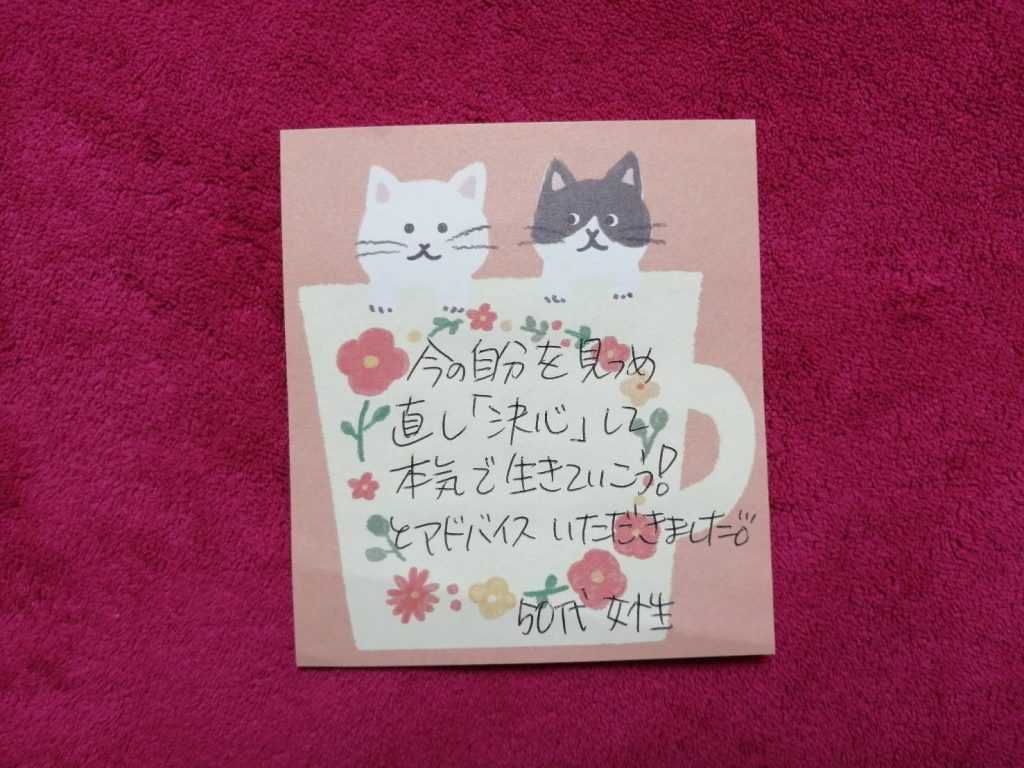 今の自分を見つめ
直し「決心」して
本気で生きていこう!
とアドバイスいただきました。
50代 女性